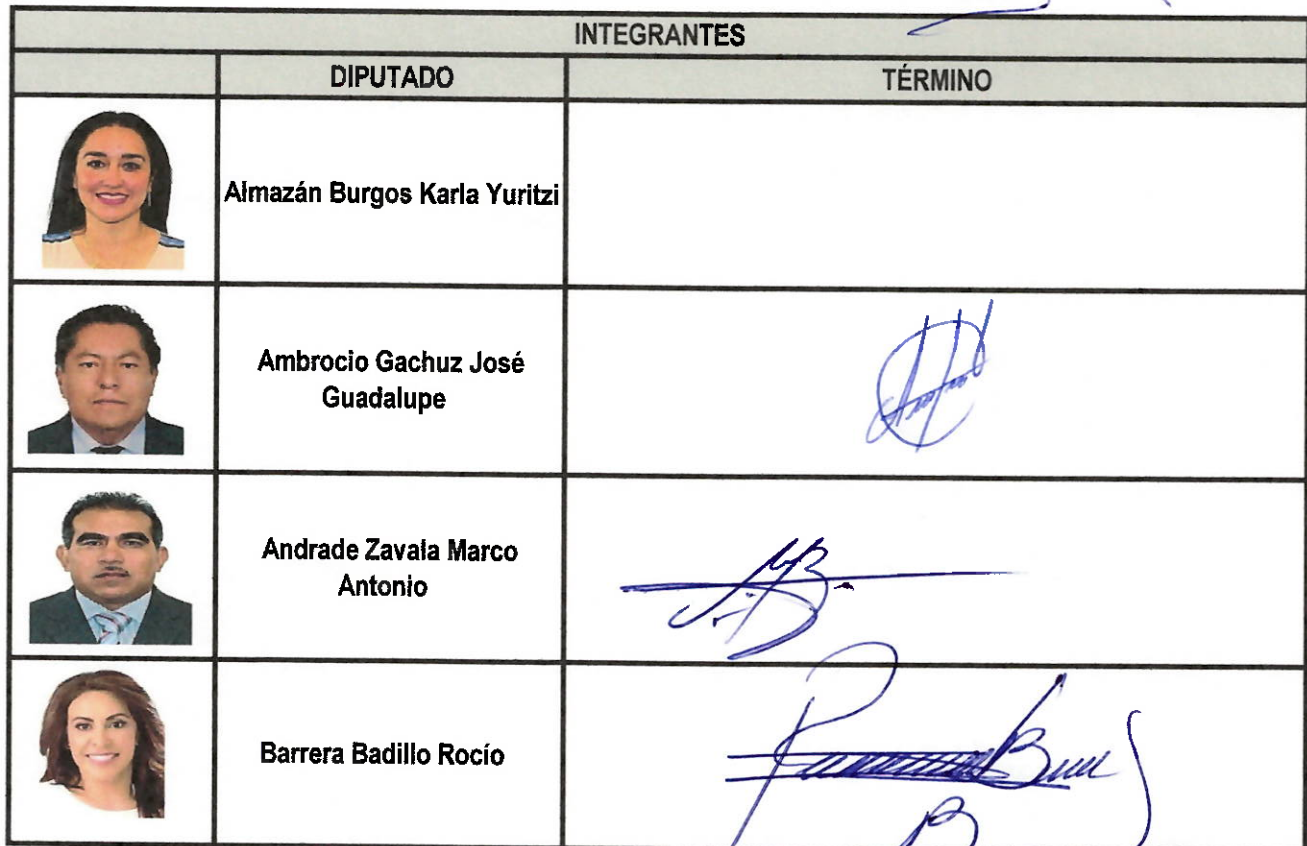 INTEGRANTES
DIPUTADO TÉRMINO
Almazán Burgos Karla Yuritzi
Ambrocio Gachuz José
Guadalupe
Andrade Zavala Marco
Antonio
Barrera Badillo Rocío